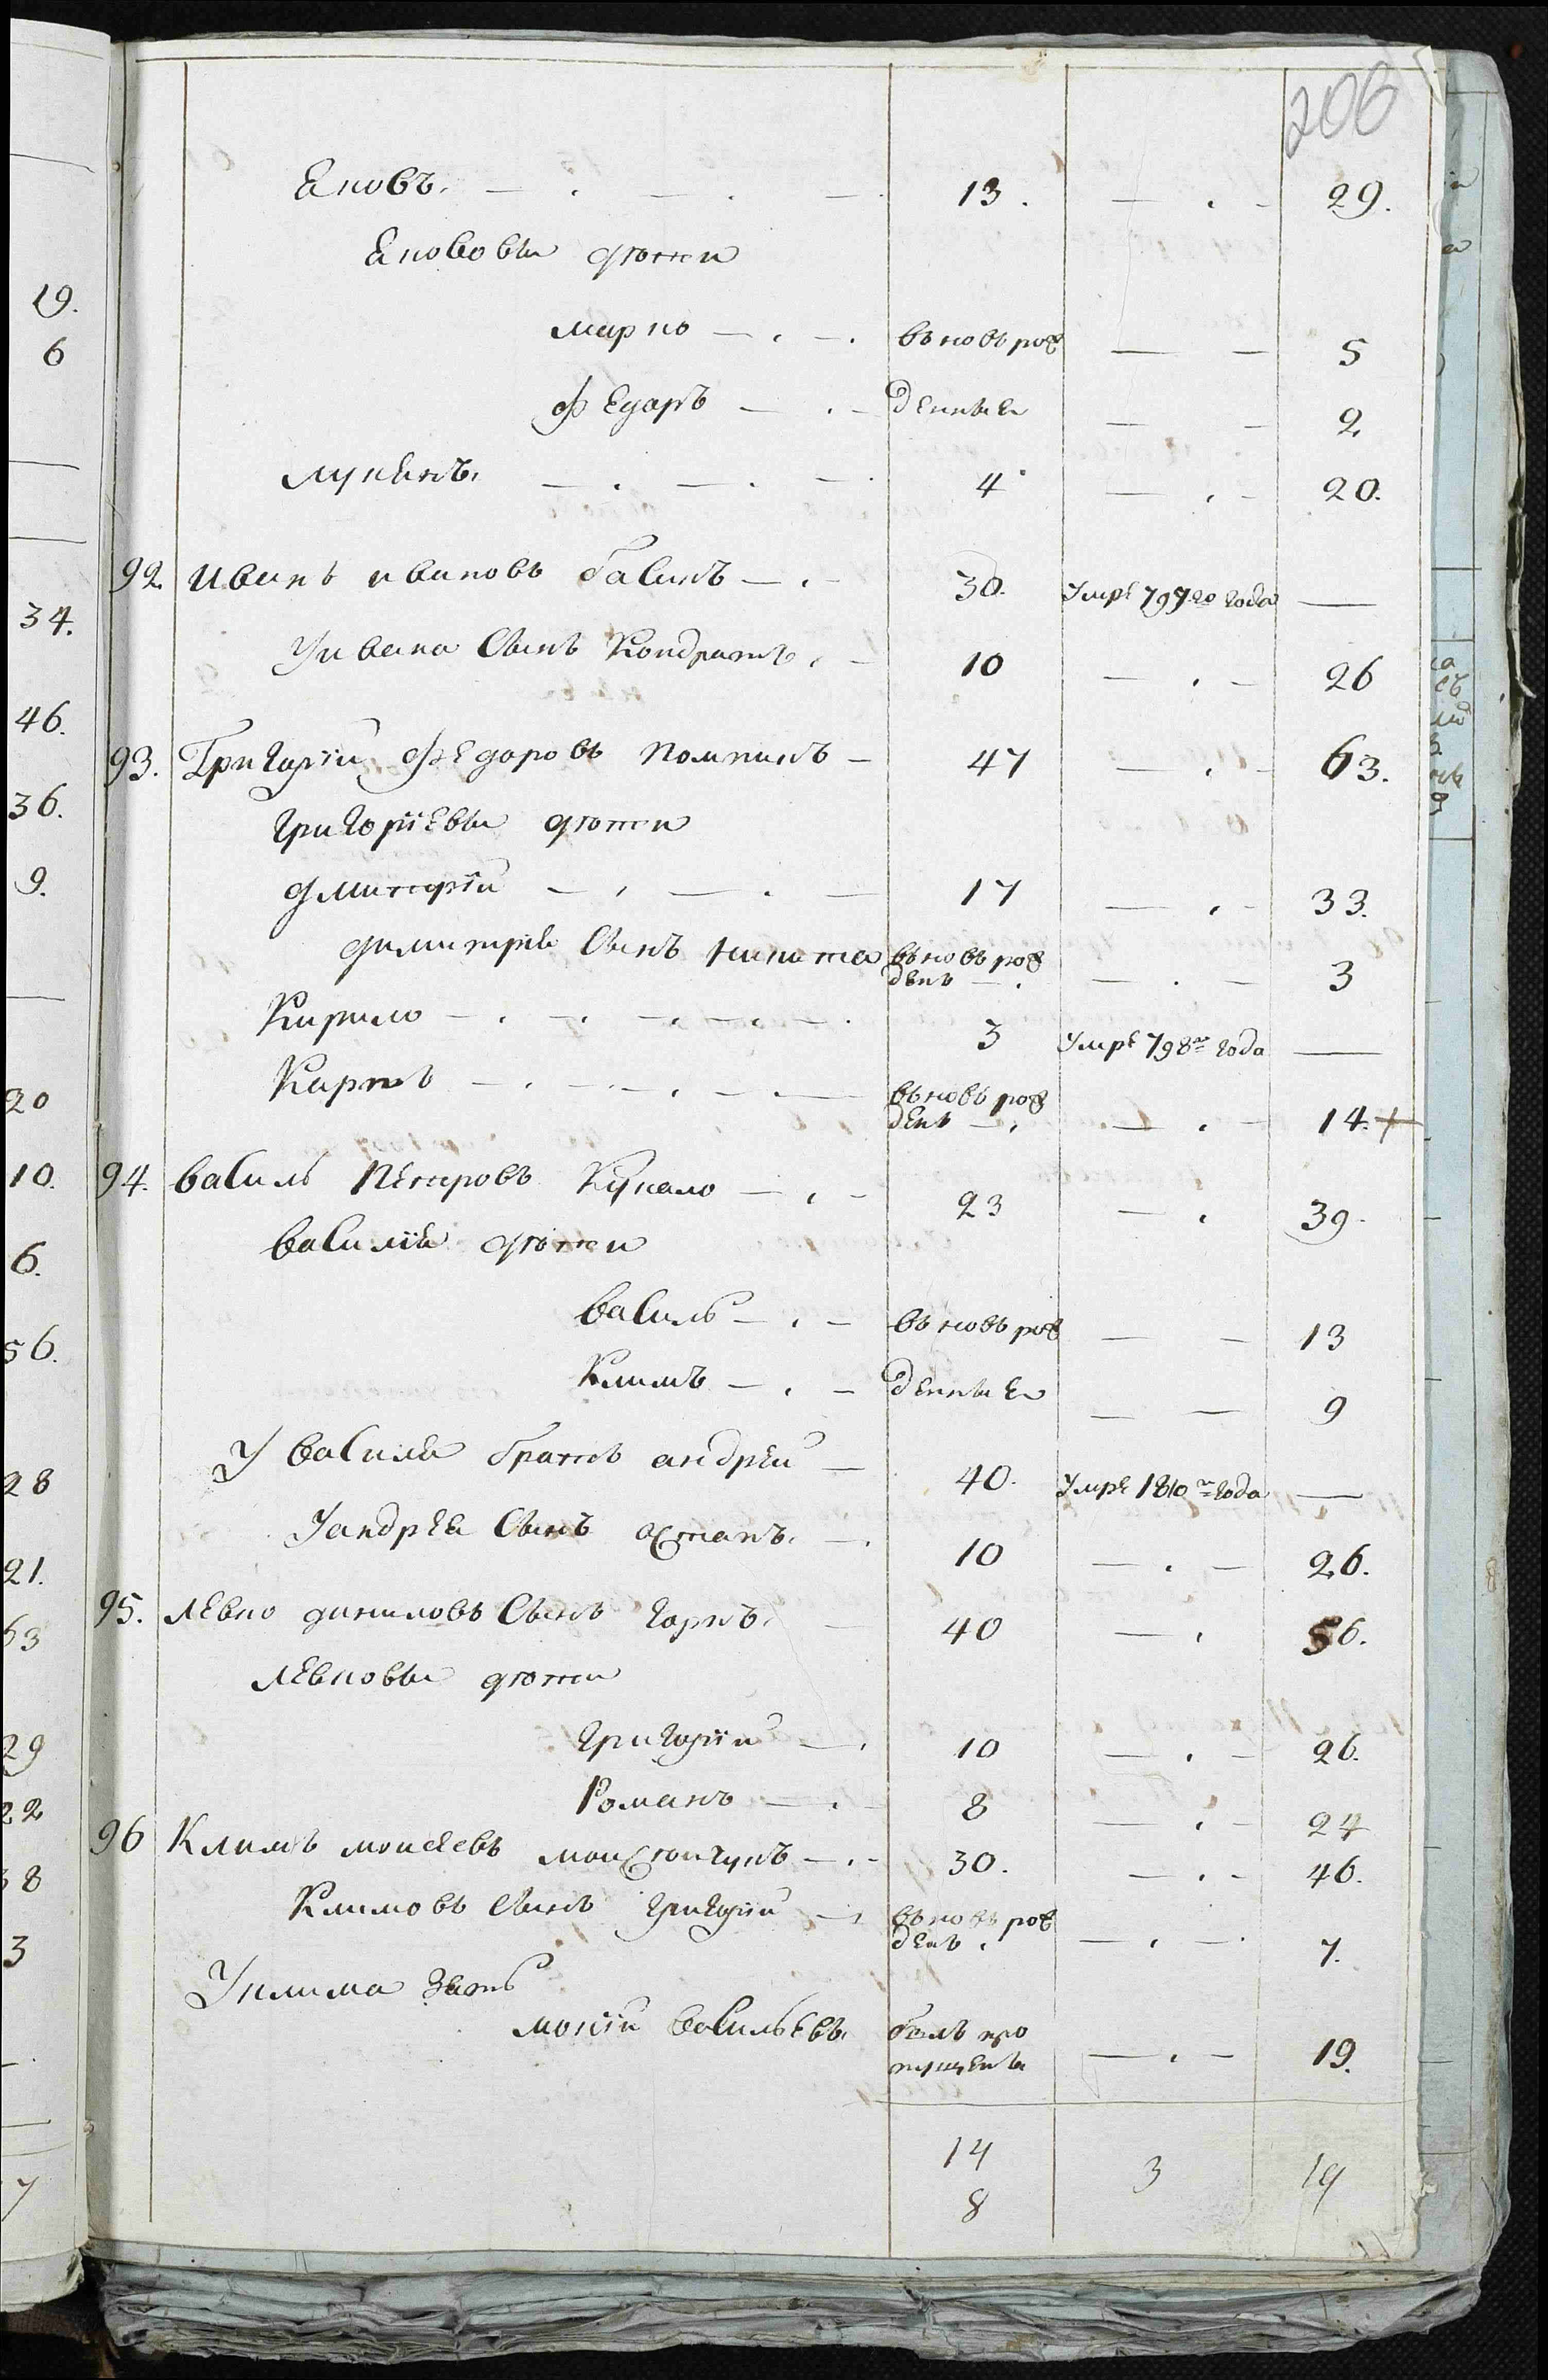 206
Яковъ. 13. 29.
Якововы дѣти
марко вновь рож 5
Федоръ денные 2
лукянъ. 4 20.
92. Иванъ ивановъ басинъ 30. умре 797го года
У ивана Сынъ Кондратъ. 10 26
93. Григорій Федоровъ 47 63.
григоріевы дѣти
дмитрій 17 33.
димитрія Сынъ никита вновь рож
денъ 3
Кирило 3 умре 798го года
Карпъ вновь рож
денъ 14.+
94. василь Петровъ 23 39.
василія дѣти
василь вновь рож 13
Климъ денные 9
У василя братъ андрей 40. умре 1810го года
У андрея Сынъ остапъ. 10 26.
95. левко даниловъ Сынъ 40 56.
левковы дѣти
григорій 10 26.
Романъ 8 24
96 Климъ моисеевъ 30. 46.
Климовъ Сынъ григорій вновь рож
денъ. 7.
У клима зять
мокій васильевъ былъ про
пущенъ 19.
14 3 19
8
19.
6
34.
46.
36.
9.
20
10.
6.
56.
28
21.
63
29
22
38
3
7